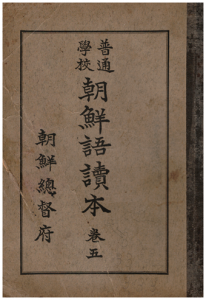 普通
學校
朝鮮語讀本
卷五
朝鮮總督府